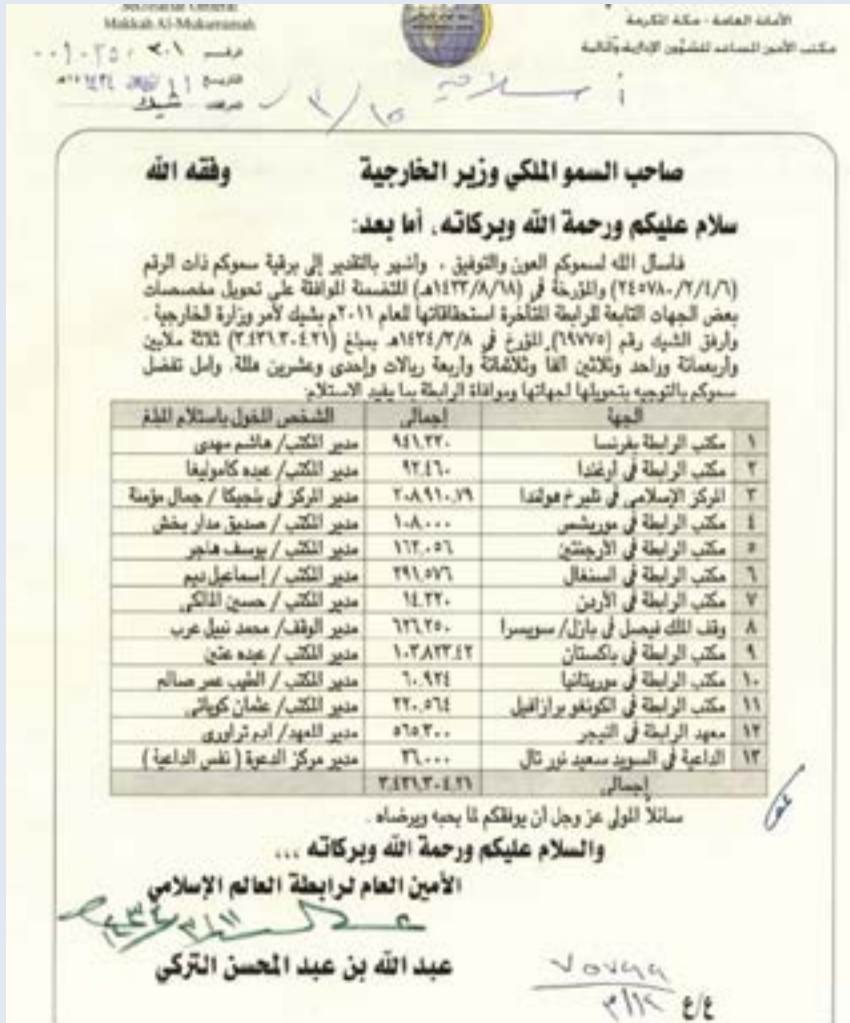 Makkah Al-Mukarramah
الأمانة العامة - مكة المكرمة
مكتب الأمين المساعد للشؤون الإدارية والمالية
الرقم
التاريخ
المرفقات شيك
صاحب السمو الملكي وزير الخارجية وفقه الله
سلام عليكم ورحمة الله وبركاته، أما بعد:
فأسأل الله لسموكم العون والتوفيق ، وأشير بالتقدير إلى برقية سموكم ذات الرقم
(٢٤٥٧٨٠/٢/٤/٦) والمؤرخة في (١٤٣٣/٨/١٨هـ) المتضمنة الموافقة على تحويل مخصصات
بعض الجهات التابعة للرابطة المتأخرة استحقاقاتها للعام ٢٠١١م بشيك لأمر وزارة الخارجية .
وأرفق الشيك رقم (٦٩٧٧٥) المؤرخ في ١٤٣٤/٣/٨هـ بمبلغ (٣.٤٣١.٣٠٤.٢١) ثلاثة ملايين
وأربعمائة وواحد وثلاثين ألفا وثلاثمائة وأربعة ريالات وإحدى وعشرين هللة. وآمل تفضل
سموكم بالتوجيه بتحويلها لجهاتها وموافاة الرابطة بما يفيد الاستلام:
الجهة إجمالي الشخص المخول باستلام المبلغ
١ مكتب الرابطة بفرنسا ٩٤١.٢٢٠ مدير المكتب/ هاشم مهدي
٢ مكتب الرابطة في أوغندا ٩٢.٤٦٠ مدير المكتب/ عبده كاموليغا
٣ المركز الإسلامي في تلبرخ هولندا ٢٠٨.٩١٠.٧٩ مدير المركز في بلجيكا / جمال مؤمنة
٤ مكتب الرابطة في موريشس ١٠٨.٠٠٠ مدير المكتب / صديق مدار بخش
٥ مكتب الرابطة في الأرجنتين ١٦٢.٠٥٦ مدير المكتب/ يوسف هاجر
٦ مكتب الرابطة في السنغال ٢٩١.٥٧٦ مدير المكتب / إسماعيل ديم
٧ مكتب الرابطة في الأردن ١٤.٢٢٠ مدير المكتب / حسين المالكي
٨ وقف الملك فيصل في بازل/ سويسرا ٦٢٦.٢٥٠ مدير الوقف/ محمد نبيل عرب
٩ مكتب الرابطة في باكستان ١٠٣.٨٢٣.٤٢ مدير المكتب / عبده عتين
١٠ مكتب الرابطة في موريتانيا ٦٠.٩٢٤ مدير المكتب / الطيب عمر صالح
١١ مكتب الرابطة في الكونغو برازافيل ٢٢٠.٥٦٤ مدير المكتب/ عثمان
١٢ معهد الرابطة في النيجر ٥٦٥.٣٠٠ مدير المعهد/ آدم تراوري
١٣ الداعية في السويد سعيد نور تال ٣٦.٠٠٠ مدير مركز الدعوة ( نفس الداعية )
إجمالي ٣.٤٣١.٣٠٤.٢١
سائلاً المولى عز وجل أن يوفقكم لما يحبه ويرضاه .
والسلام عليكم ورحمة الله وبركاته ...
الأمين العام لرابطة العالم الإسلامي
عبد الله بن عبد المحسن التركي
ع/ع